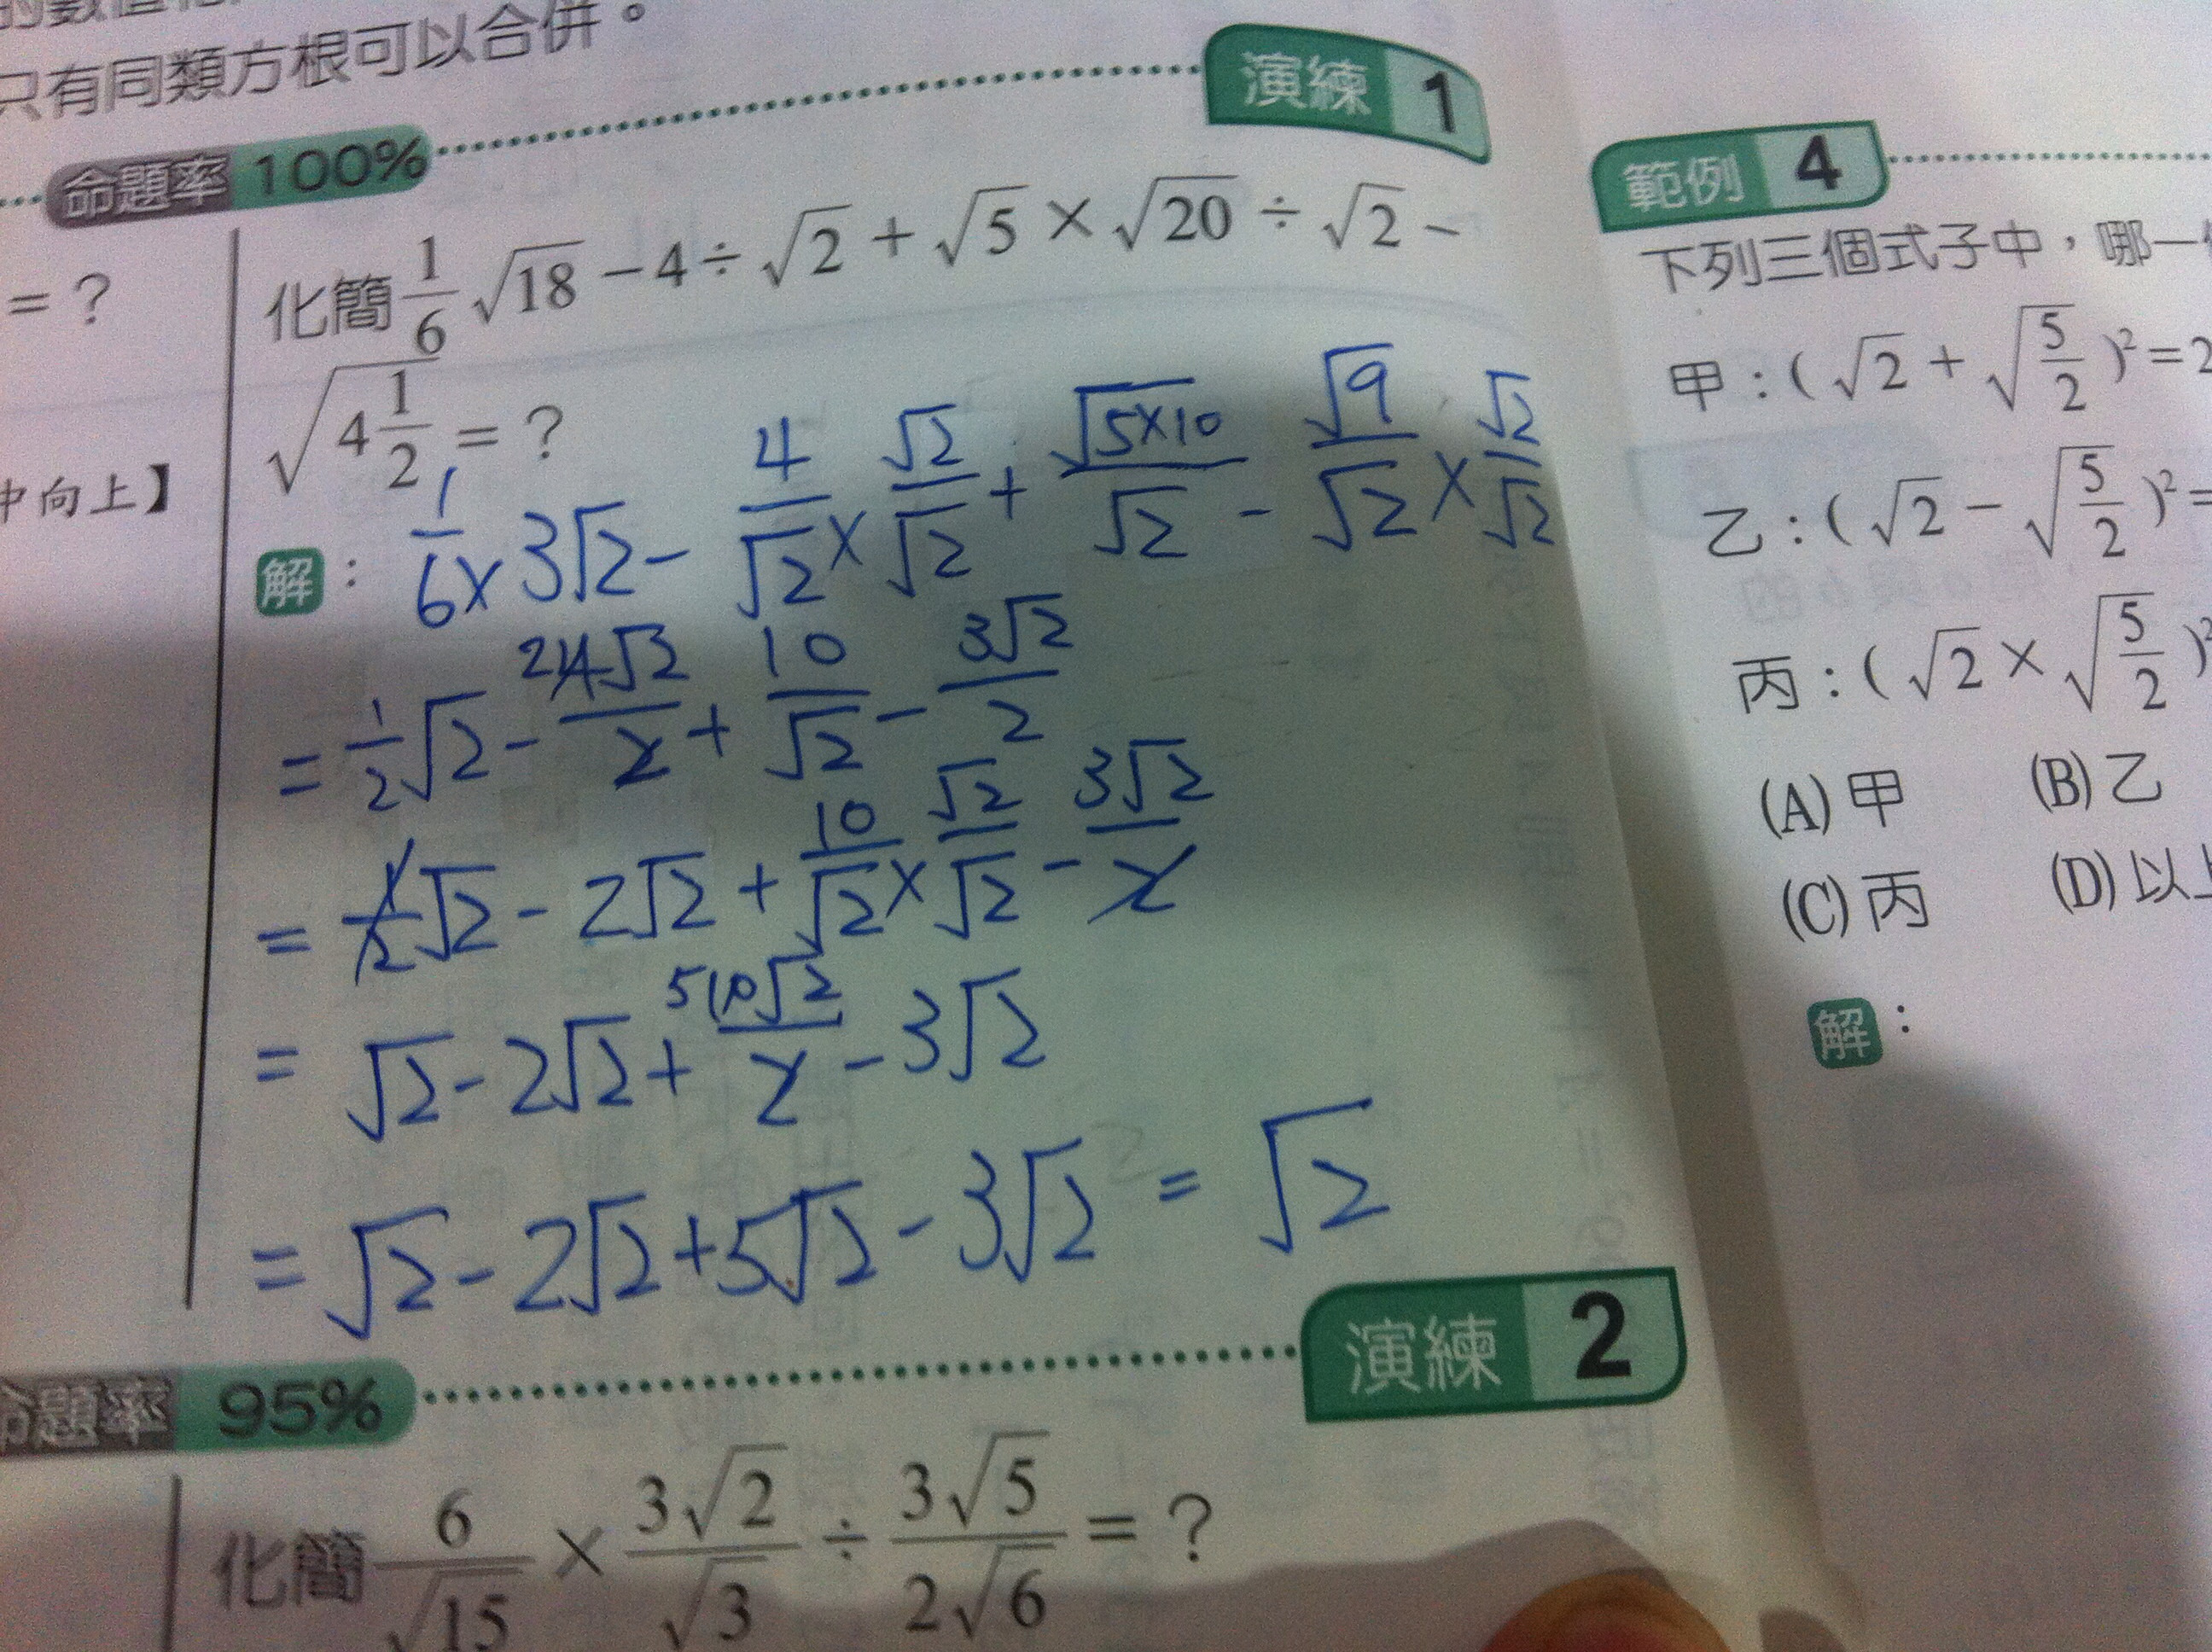 只有同類方根可以合併。
演練 1
命題率 100%
= ?
化簡 1/6 √18 − 4 ÷ √2 + √5 × √20 ÷ √2 −
√(4 1/2) = ?
中向上】
解： 1/6 × 3√2 − 4/√2 × √2/√2 + √(5×10)/√2 − √9/√2 × √2/√2
= 1/2 √2 − 4√2/2 + 10/√2 − 3√2/2
= 1/2 √2 − 2√2 + 10/√2 × √2/√2 − 3√2/2
= √2 − 2√2 + 10√2/2 − 3√2
= √2 − 2√2 + 5√2 − 3√2 = √2
命題率 95%
演練 2
化簡 6/√15 × 3√2/√3 ÷ 3√5/2√6 = ?
範例 4
下列三個式子中，哪一
甲：( √2 + √(5/2) )² = 2
乙：( √2 − √(5/2) )² =
丙：( √2 × √(5/2) )²
(A) 甲 (B) 乙
(C) 丙 (D) 以上
解：